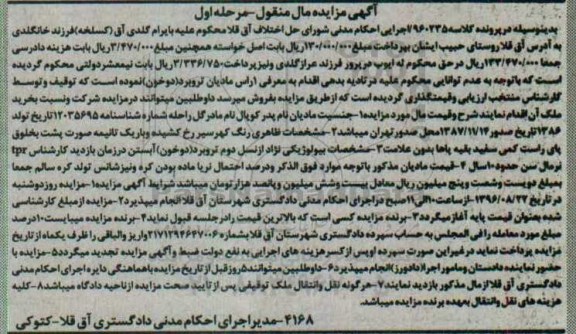 آگهی مزایده مال منقول-مرحله اول
بدینوسیله در پرونده کلاسه ۹۶۰۲۳۵/اجرایی احکام مدنی شورای حل اختلاف آق قلا محکوم علیه بایرام گلدی آق (کسلخه) فرزند خانگلدی
به آدرس آق قلا روستای حبیب ایشان بپرداخت مبلغ ۱۳۰/۰۰۰/۰۰۰ ریال بابت اصل خواسته همچنین مبلغ ۳/۴۷۰/۰۰۰ ریال بابت هزینه دادرسی
جمعا ۱۳۳/۴۷۰/۰۰۰ ریال در حق محکوم له ایوب درپور فرزند عراز گلدی و نیز پرداخت ۳/۳۳۶/۷۵۰ ریال بابت نیمعشر دولتی محکوم گردیده
است که باتوجه به عدم توانایی محکوم علیه در تادیه بدهی اقدام به معرفی ۱ راس مادیان تروبرد (دوخون) نموده است که توقیف و توسط
کارشناس منتخب ارزیابی و قیمتگذاری گردیده است که از طریق مزایده بفروش میرسد داوطلبین میتوانند در مزایده شرکت و نسبت بخرید
ملک آن اقدام نمایند شرح و قیمت مال مورد مزایده ۱-جنسیت مادیان نام پدر کوپال نام مادر گل راحله شماره شناسنامه ۱۲۰۳۵۶۹۵ تاریخ تولد
۱۳۸۶ تاریخ صدور ۱۳۸۷/۱۱/۱۴ محل صدور تهران میباشد ۲-مشخصات ظاهری رنگ کهر سیر رخ کشیده و باریک تا نیمه صورت پشت بخلوق
پای راست کمی سفید بقیه پاها بدون علامت ۳-مشخصات بیولوژیکی نژاد از نسل دوم تروبرد (دوخون) آبستن در زمان بازدید کارشناس tpr
نرمال سن حدود ۱۰ سال ۴-قیمت مادیان مذکور باتوجه موارد فوق الذکر و درصد احتمال نر یا ماده بودن کره و نیز شانس تولد کره سالم جمعا
بمبلغ دویست و شصت و پنج میلیون ریال معادل بیست و شش میلیون و پانصد هزار تومان میباشد شرایط آگهی مزایده ۱-مزایده روز دوشنبه
در تاریخ ۱۳۹۶/۰۸/۲۲ از ساعت ۱۰ الی ۱۱ صبح در اجرای احکام مدنی دادگستری شهرستان آق قلا انجام میپذیرد ۲-مزایده از مبلغ کارشناسی
شده بعنوان قیمت پایه آغاز میگردد ۳-برنده مزایده کسی است که بالاترین قیمت را در جلسه قبول نماید ۴-برنده مزایده میبایست ۱۰ درصد
مبلغ مورد معامله را فی المجلس به حساب سپرده دادگستری شهرستان آق قلا بشماره ۲۱۷۱۲۹۴۶۶۷۰۰۶ واریز والباقی را ظرف یکماه از تاریخ
مزایده پرداخت نماید در غیر این صورت سپرده او پس از کسر هزینه های اجرایی به نفع دولت ضبط و آگهی مزایده تجدید میگردد ۵-مزایده با
حضور نماینده دادستان و مامور اجرا (دادورز) انجام میپذیرد ۶-داوطلبین میتوانند ۵ روز قبل از تاریخ مزایده با هماهنگی دایره اجرای احکام مدنی
دادگستری آق قلا از مال مذکور بازدید نمایند ۷-هرگونه نقل و انتقال ملک توقیفی پس از تایید صحت مزایده از ناحیه دادگاه میباشد ۸-کلیه
هزینه های نقل و انتقال بعهده برنده مزایده میباشد.
۴۱۶۸-مدیر اجرای احکام مدنی دادگستری آق قلا-کتوکی